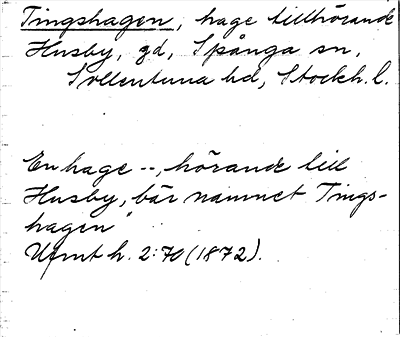 Tingshagen, hage tillhörande
Husby, gd, Spånga sn,
Sollentuna hd, Stockh. l.
En hage --, hörande till
Husby, bär namnet Tings-
hagen"
Ufmt h. 2:70 (1872).